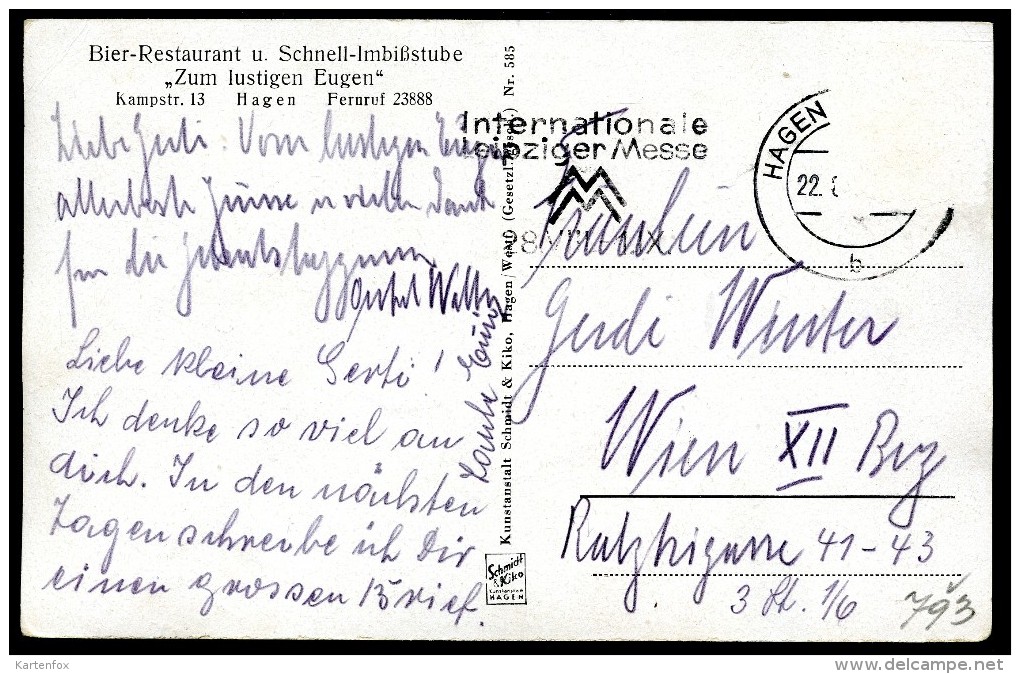 Bier-Restaurant u. Schnell-Imbißstube
„Zum lustigen Eugen“
Kampstr. 13 Hagen Fernruf 23888
Liebe Gerti: Vom lustigen Eugen
allerbeste Grüsse u vielen Dank
für die
Onkel Walter
Liebe kleine Gerti!
Ich denke so viel an
dich. In den nächsten
Tagen schreibe ich Dir
einen grossen Brief.
Tante
Kunstanstalt Schmidt & Kiko, Hagen/Westf. (Gesetzl. gesch.) Nr. 585
Schmidt
& Kiko
Kunstanstalt
HAGEN
Internationale
Leipziger Messe
MM
HAGEN
22.
b
Fräulein
Gerdi Winter
Wien XII Bez
41-43
3 St. 1/6
793
Kartenfox
www.delcampe.net